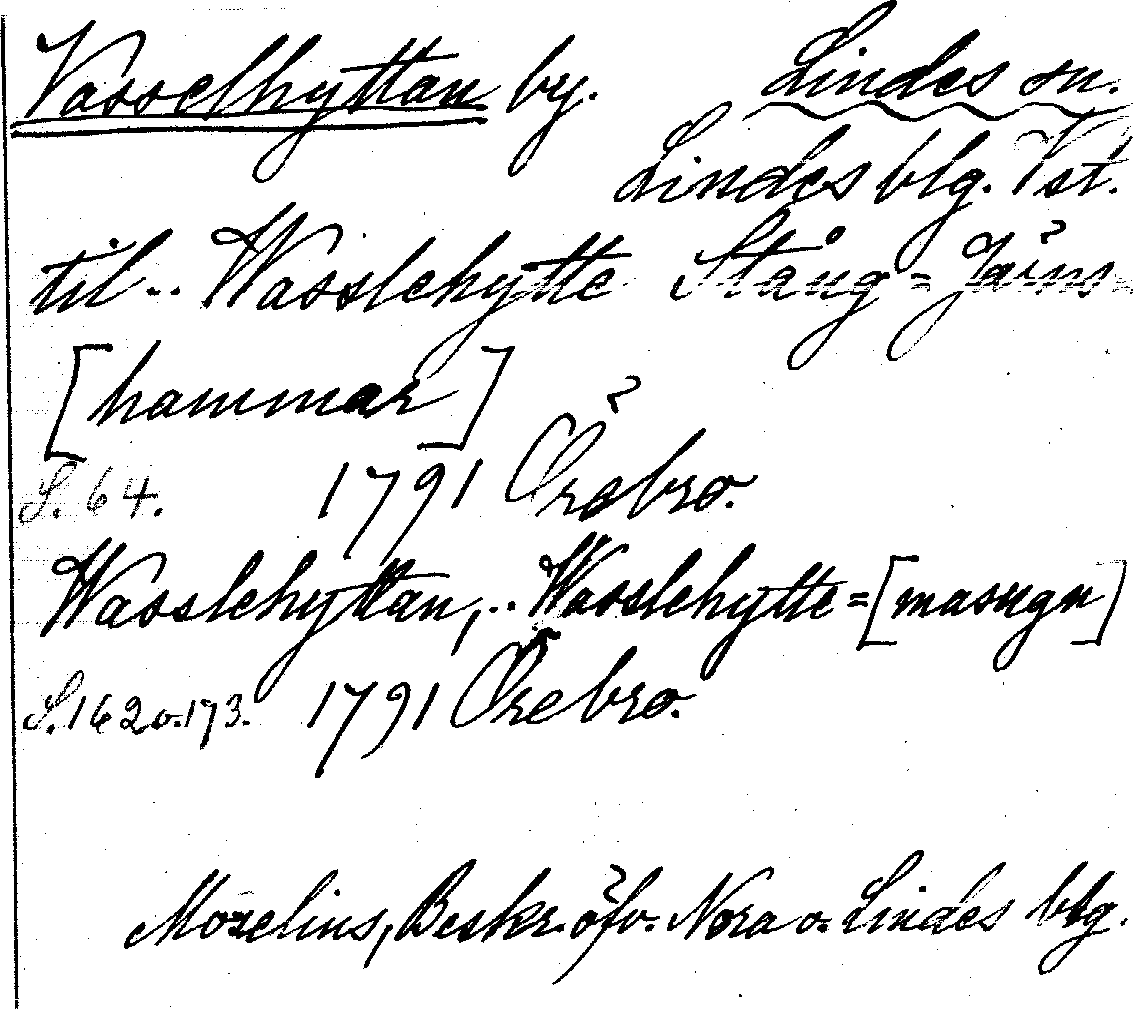 Vasselhyttan by. Lindes sn.
Lindes blg. Vst.
til.. Wasslehytte Stång=Järns-
[hammar]
S. 64. 1791 Örebro.
Wasslehyttan,.. Wasslehytte=[masugn]
S. 162 o. 173. 1791 Örebro.
Morelius, Beskr. öfv. Nora o. Lindes blg.